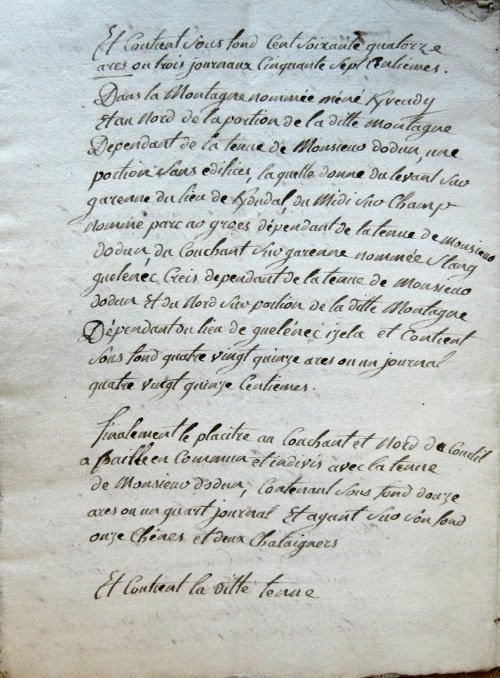 Et Contient sous fond Cent soixante quatorze
ares ou trois journaux Cinquante sept Centiemes.
Dans la Montagne nommée méné Kvendy
Et au Nord de la portion de la ditte Montagne
Dependant de la tenue de Monsieur dodun, une
portion sans edifices, laquelle donne du levant sur
garenne du lieu de Kdudal, du Midi sur Champ
nommé parc ar groes dépendant de la tenue de Monsieur
dodun, du Couchant sur garenne nommée Stang
guelénec Creis dependant de la tenue de Monsieur
dodun Et du Nord sur portion de la ditte Montagne
Dépendant du lieu de guelénec izela et Contient
sous fond quatre vingt quinze ares ou un journal
quatre vingt quinze Centiemes.
finalement le placitre au Couchant et Nord du Courtil
a paille en Commun et indivis avec la tenue
de Monsieur dodun, Contenant sous fond douze
ares ou un quart journal Et ayant sur son fond
onze Chênes et deux Chataigners
Et Contient la ditte tenue